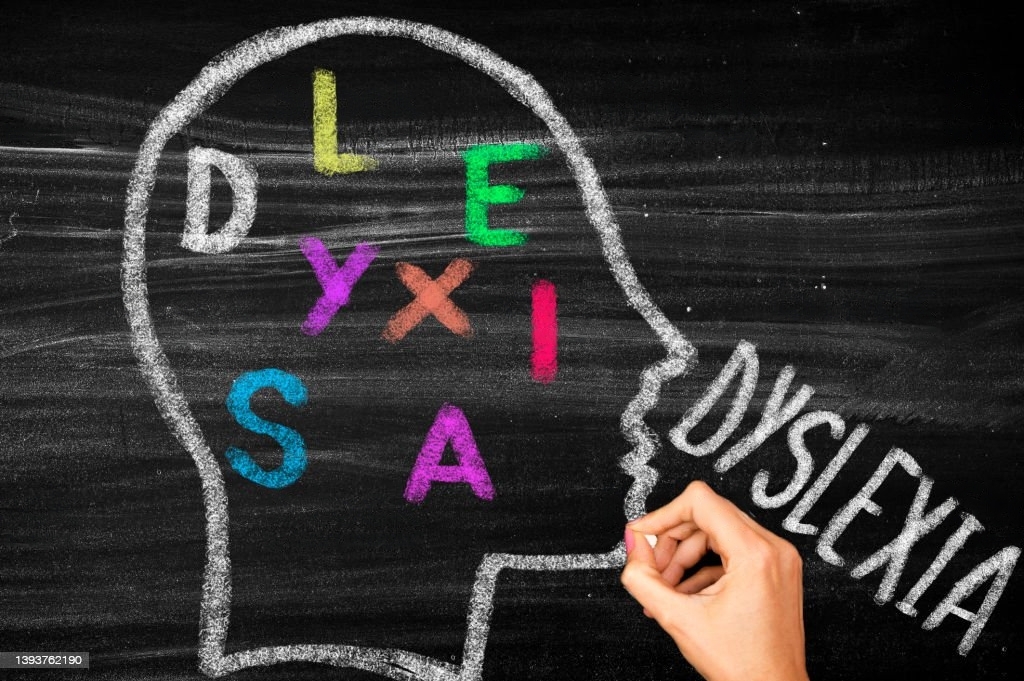 L
D E
Y X I
S A
DYSLEXIA
1393762190